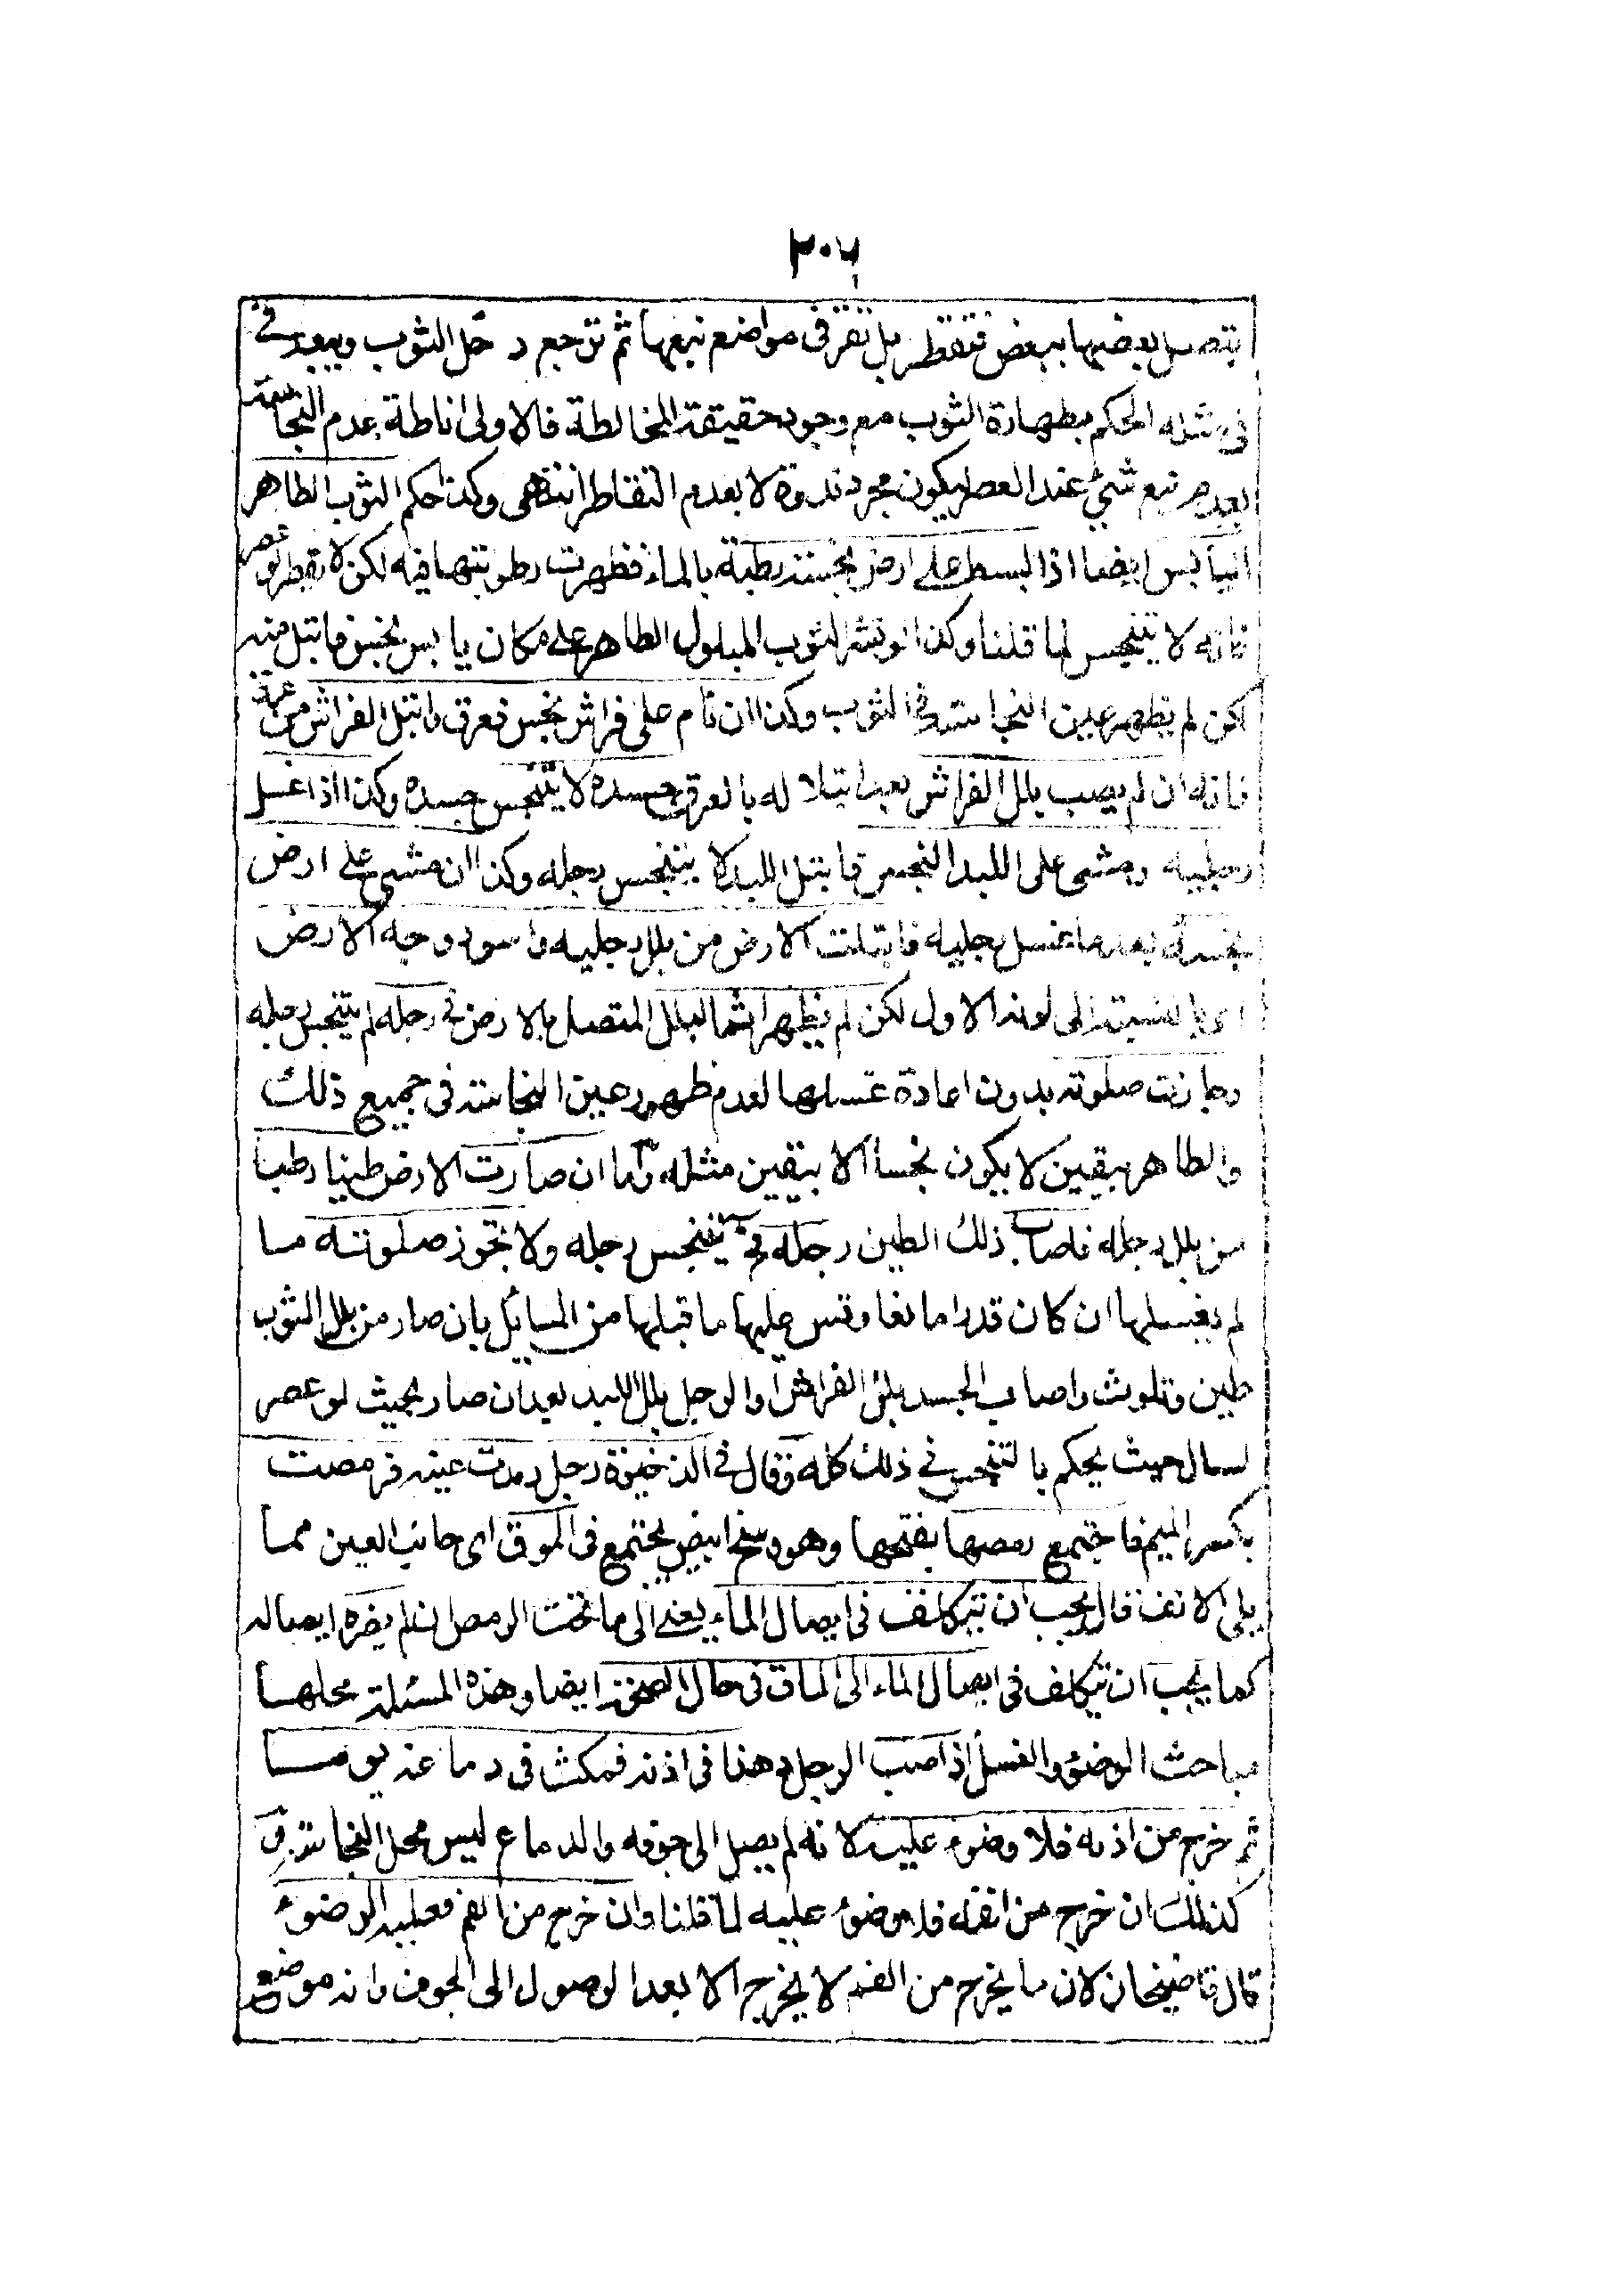 ٣٠٧
يتصل بعضها ببعض فتقطر بل تقر في مواضع نبعها ثم ترجع د خل الثوب ويبعد في
في مثله الحكم بطهارة الثوب مع وجود حقيقة المخالطة فالاولى اناطة عدم النجاسة
بعدم نبع شئ عند العصر ليكون مجرد ندوة لا بعدم التقاطر انتهى وكذا حكم الثوب الطاهر
اليابس ايضا اذا بسط على ارض نجسة رطبة بالماء فظهرت رطوبتها فيه لكن لا يقطر لو عصر
فانه لا يتنجس لما قلنا وكذا لو نشر الثوب المبلول الطاهر على مكان يابس نجس فابتل منه
لكن لم يظهر عين النجاسة في الثوب وكذا ان نام على فراش نجس فعرق وابتل الفراش من عرقه
فانه ان لم يصب بلل الفراش بعد ابتلا له بالعرق جسده لا يتنجس جسده وكذا اذا غسل
رجليه ومشى على اللبد النجس فابتل اللبد لا يتنجس رجله وكذا ان مشى على ارض
نجسة بعد ما غسل رجليه فابتلت الارض من بلل رجليه واسود وجه الارض
اى بالنسبة الى لونه الاول لكن لم يظهر اثر البلل المتصل بالارض في رجله لم يتنجس رجله
وجازت صلوته بدون اعادة غسلها لعدم ظهور عين النجاسة في جميع ذلك
والطاهر بيقين لا يكون نجسا الا بيقين مثله واما ان صارت الارض طينا رطبا
من بلل رجله فاصاب ذلك الطين رجله فح يتنجس رجله ولا تجوز صلوته ما
لم يغسلها ان كان قدرا مانعا وقس عليها ما قبلها من المسائل بان صار من بلل الثوب
طين وتلوث واصاب الجسد بلل الفراش او الرجل بلل اللبد بعد ان صار بحيث لو عصر
لسال حيث يحكم بالتنجس في ذلك كله وقال في الذخيرة رجل رمدت عينه فرمصت
بكسر الميم فاجتمع رمصها بفتحها وهو وسخ ابيض يجتمع في الموق اى جانب العين مما
يلى الانف قال يجب ان يتكلف في ايصال الماء يعنى الى ما تحت الرمص ان لم يضره ايصاله
كما يجب ان يتكلف في ايصال الماء الى الماق في حال الصحة ايضا وهذه المسئلة محلها
مباحث الوضؤ والغسل اذا صب الرجل دهنا في اذنه فمكث في دماغه يوما
ثم خرج من اذنه فلا وضوء عليه لانه لم يصل الى جوفه والدماغ ليس محل النجاسة و
كذلك ان خرج من انفه فلا وضوء عليه لما قلنا وان خرج من الفم فعليه الوضوء
قال قاضيخان لان ما يخرج من الفم لا يخرج الا بعد الوصول الى الجوف وانه موضع